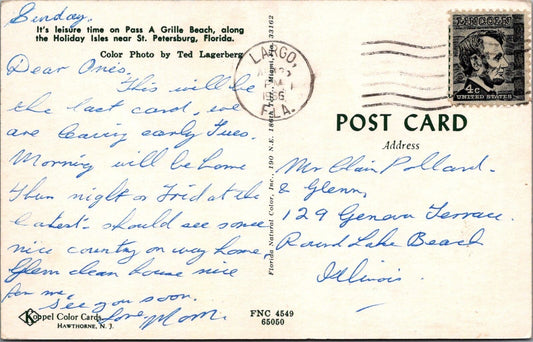 Sunday.
It's leisure time on Pass A Grille Beach, along
the Holiday Isles near St. Petersburg, Florida.
Color Photo by Ted Lagerberg
Dear Ones,
This will be
the last card, we
are leaving early Tues.
Morning will be home
Thur night or Frid at the
latest - should see some
nice country on way home,
Glenn clean house nice
for me.
See you soon.
Love, Mom.
Koppel Color Cards
HAWTHORNE, N. J.
Florida Natural Color, Inc., 190 N.E. Fla. 33162
FNC 4549
65050
LARGO,
FLA.
LINCOLN
4c
UNITED STATES
POST CARD
Address
Mr Clair Pollard.
& Glenn,
129 Genova Terrace.
Round Lake Beach
Illinois